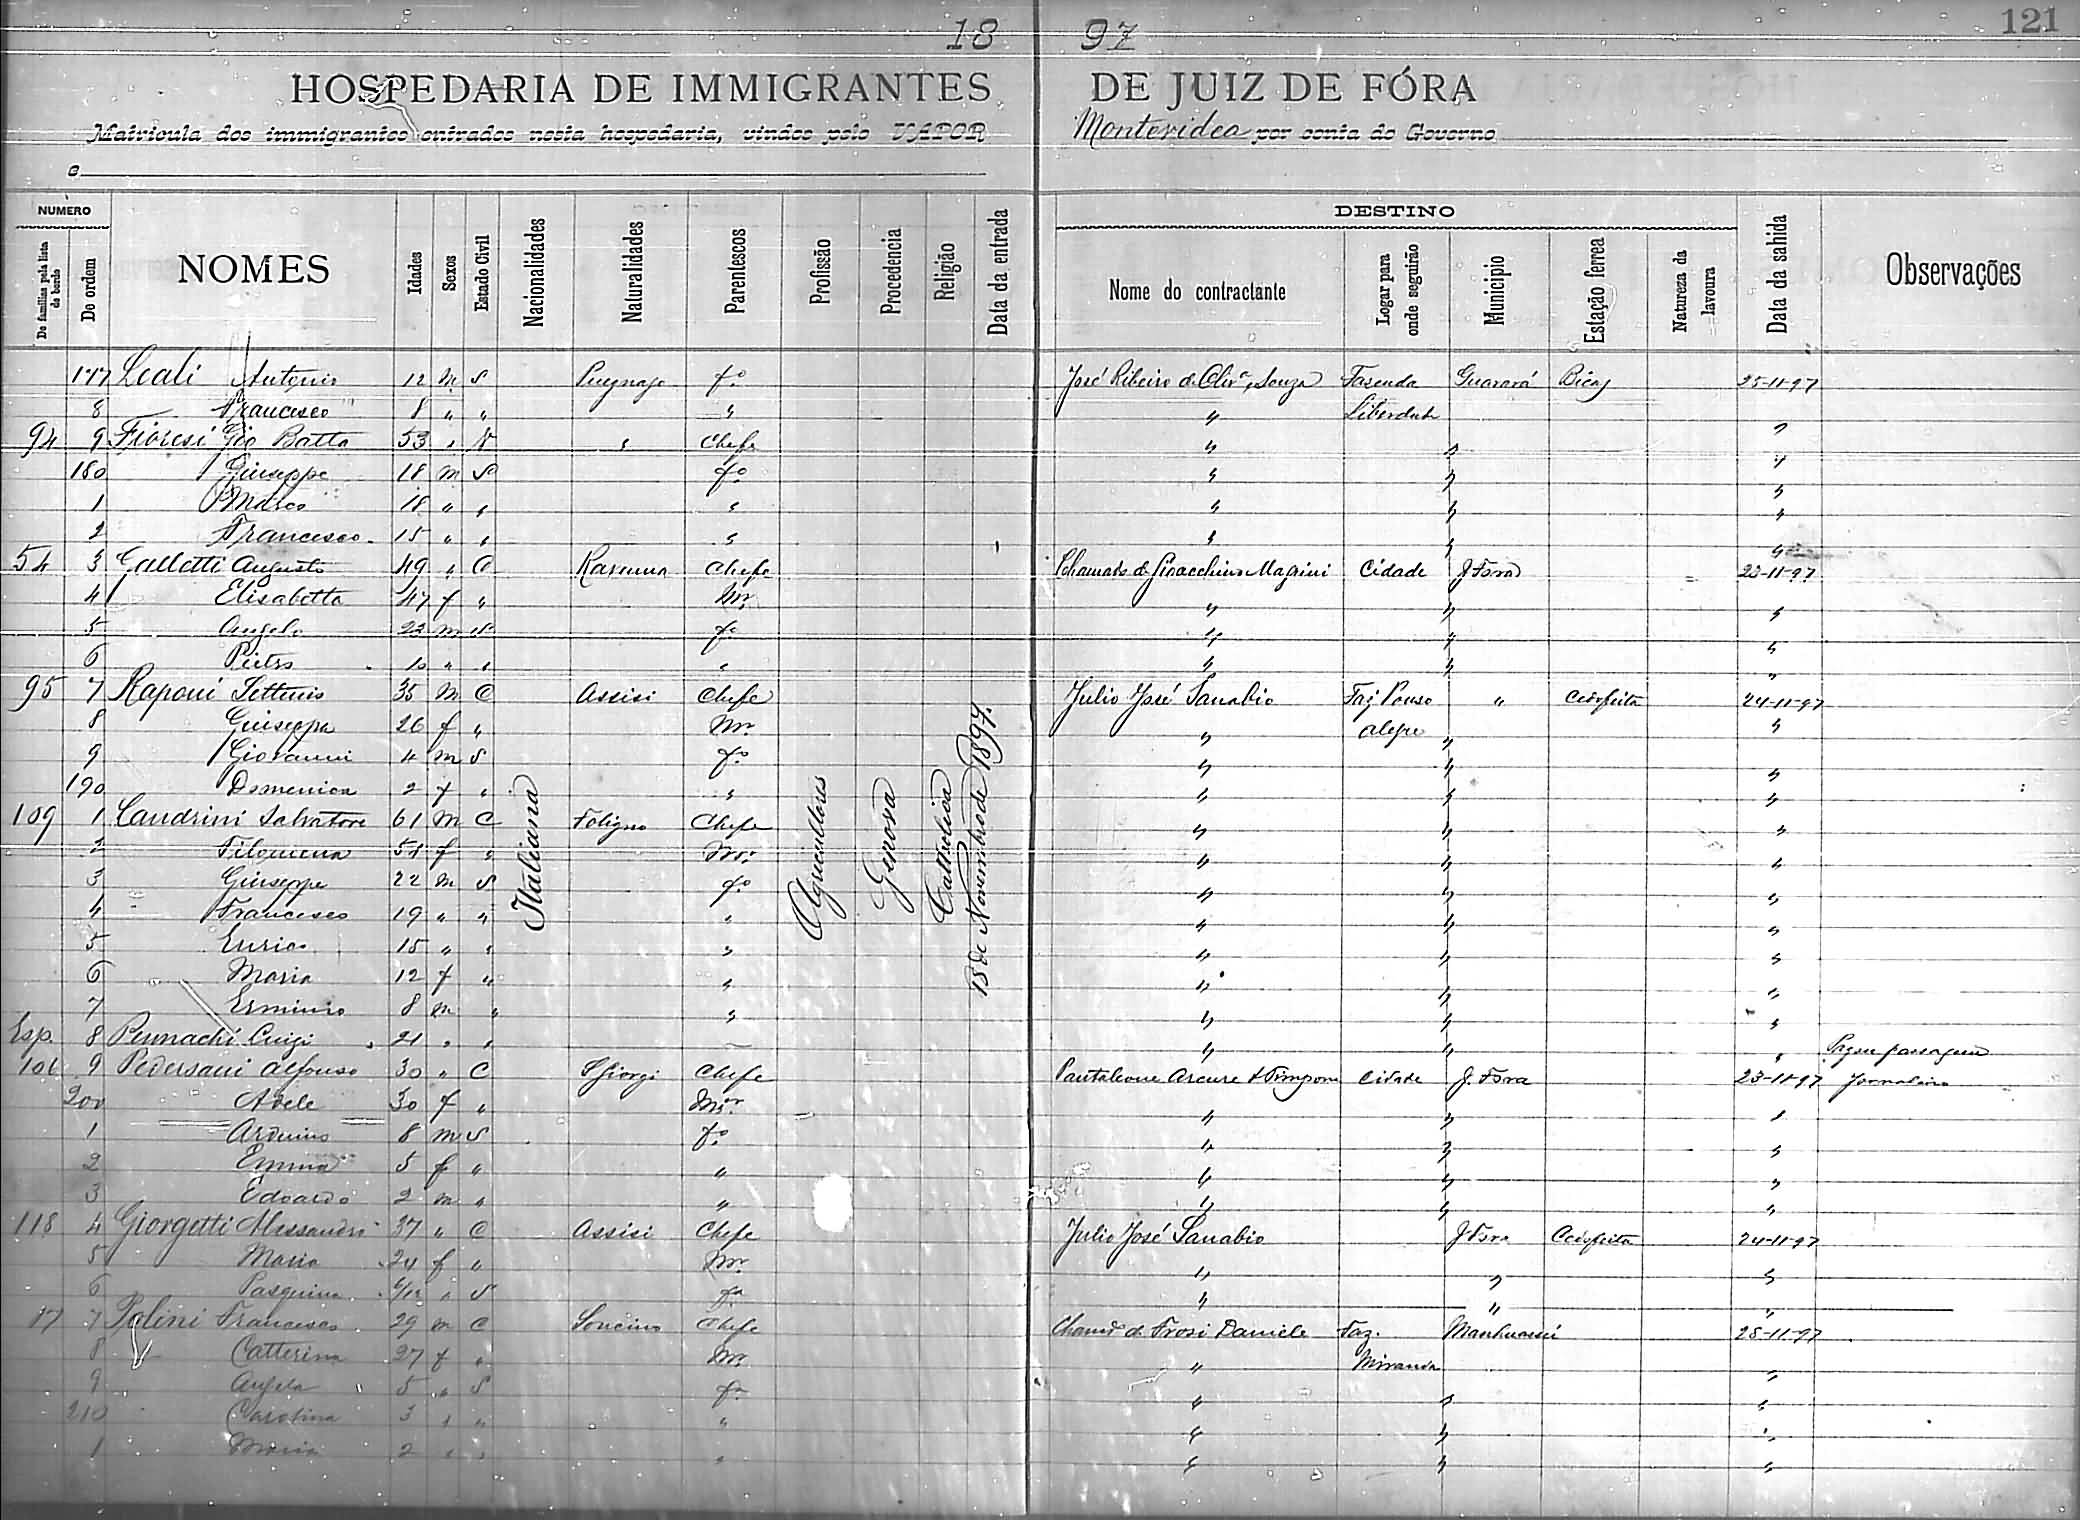 121
18 97
HOSPEDARIA DE IMMIGRANTES DE JUIZ DE FÓRA
Matricula dos immigrantes entrados nesta hospedaria, vindos pelo VAPOR Montevidea por conta do Governo
e
NUMERO
De familias pela lista de bordo
De ordem
NOMES
Idades
Sexos
Estado Civil
Nacionalidades
Naturalidades
Parentescos
Profissão
Procedencia
Religião
Data da entrada
DESTINO
Nome do contractante
Logar para onde seguirão
Municipio
Estação ferrea
Natureza da lavoura
Data da sahida
Observações
177 Leali Antonio 12 m S fo José Ribeiro de Olivra Souza Fazenda Guarará Bicas 25-11-97
8 Francesco 8 " " " " Liberdade "
94 9 Fioresi Gio Batta 53 " V " Chefe " " "
180 Giuseppe 18 m S fo " " "
1 Marco 18 " " " " " "
2 Francesco 15 " " " " " "
54 3 Galletti Augusto 49 " C Ravenna Chefe Chamado de Gioacchino Magrini Cidade J. Fora 23-11-97
4 Elisabetta 47 f " Mr " " "
5 Angelo 22 m S fo " " "
6 Pietro 10 " " " " " "
95 7 Raponi Settimio 35 m C Assisi Chefe Julio José Sanabio Faz Pouso " 24-11-97
8 Giuseppa 26 f " Mr " alegre " "
9 Giovanni 4 m S fo " " "
190 Domenica 2 f " " " " "
109 1 Candrini Salvatore 61 m C Foligno Chefe " " "
2 Filomena 54 f " Mr " " "
3 Giuseppe 22 m S fo " " "
4 Francesco 19 " " " " " "
5 Enrico 15 " " " " " "
6 Maria 12 f " " " "
7 Erminio 8 m " " " " "
Esp. 8 Pennachi Luigi 21 " " " " " Pagou passagem
106 9 Pedersani Alfonso 30 " C S Giorgi Chefe Pantaleone Arcure & Timponi Cidade J. Fora 23-11-97 Jornaleiro
200 Adele 30 f " Mr " " "
1 Arduino 8 m S fo " " "
2 Emma 5 f " " " " "
3 Edoardo 2 m " " " " "
118 4 Giorgetti Alessandro 37 " C Assisi Chefe Julio José Sanabio J Fora 24-11-97
5 Maria 24 f " Mr " " "
6 Pasquina " S fa " " "
17 7 Polini Francesco 29 m C Soncino Chefe Chamdo de Frosi Daniele Faz. Manhuassú 25-11-97
8 Catterina 27 f " Mr " Miranda "
9 Angela 5 " S fa " " "
210 Carolina 3 " " " " " "
1 Maria 2 " " " " " "
Italiana
Agricultores
Genova
Catholica
18 de Novembro de 1897.